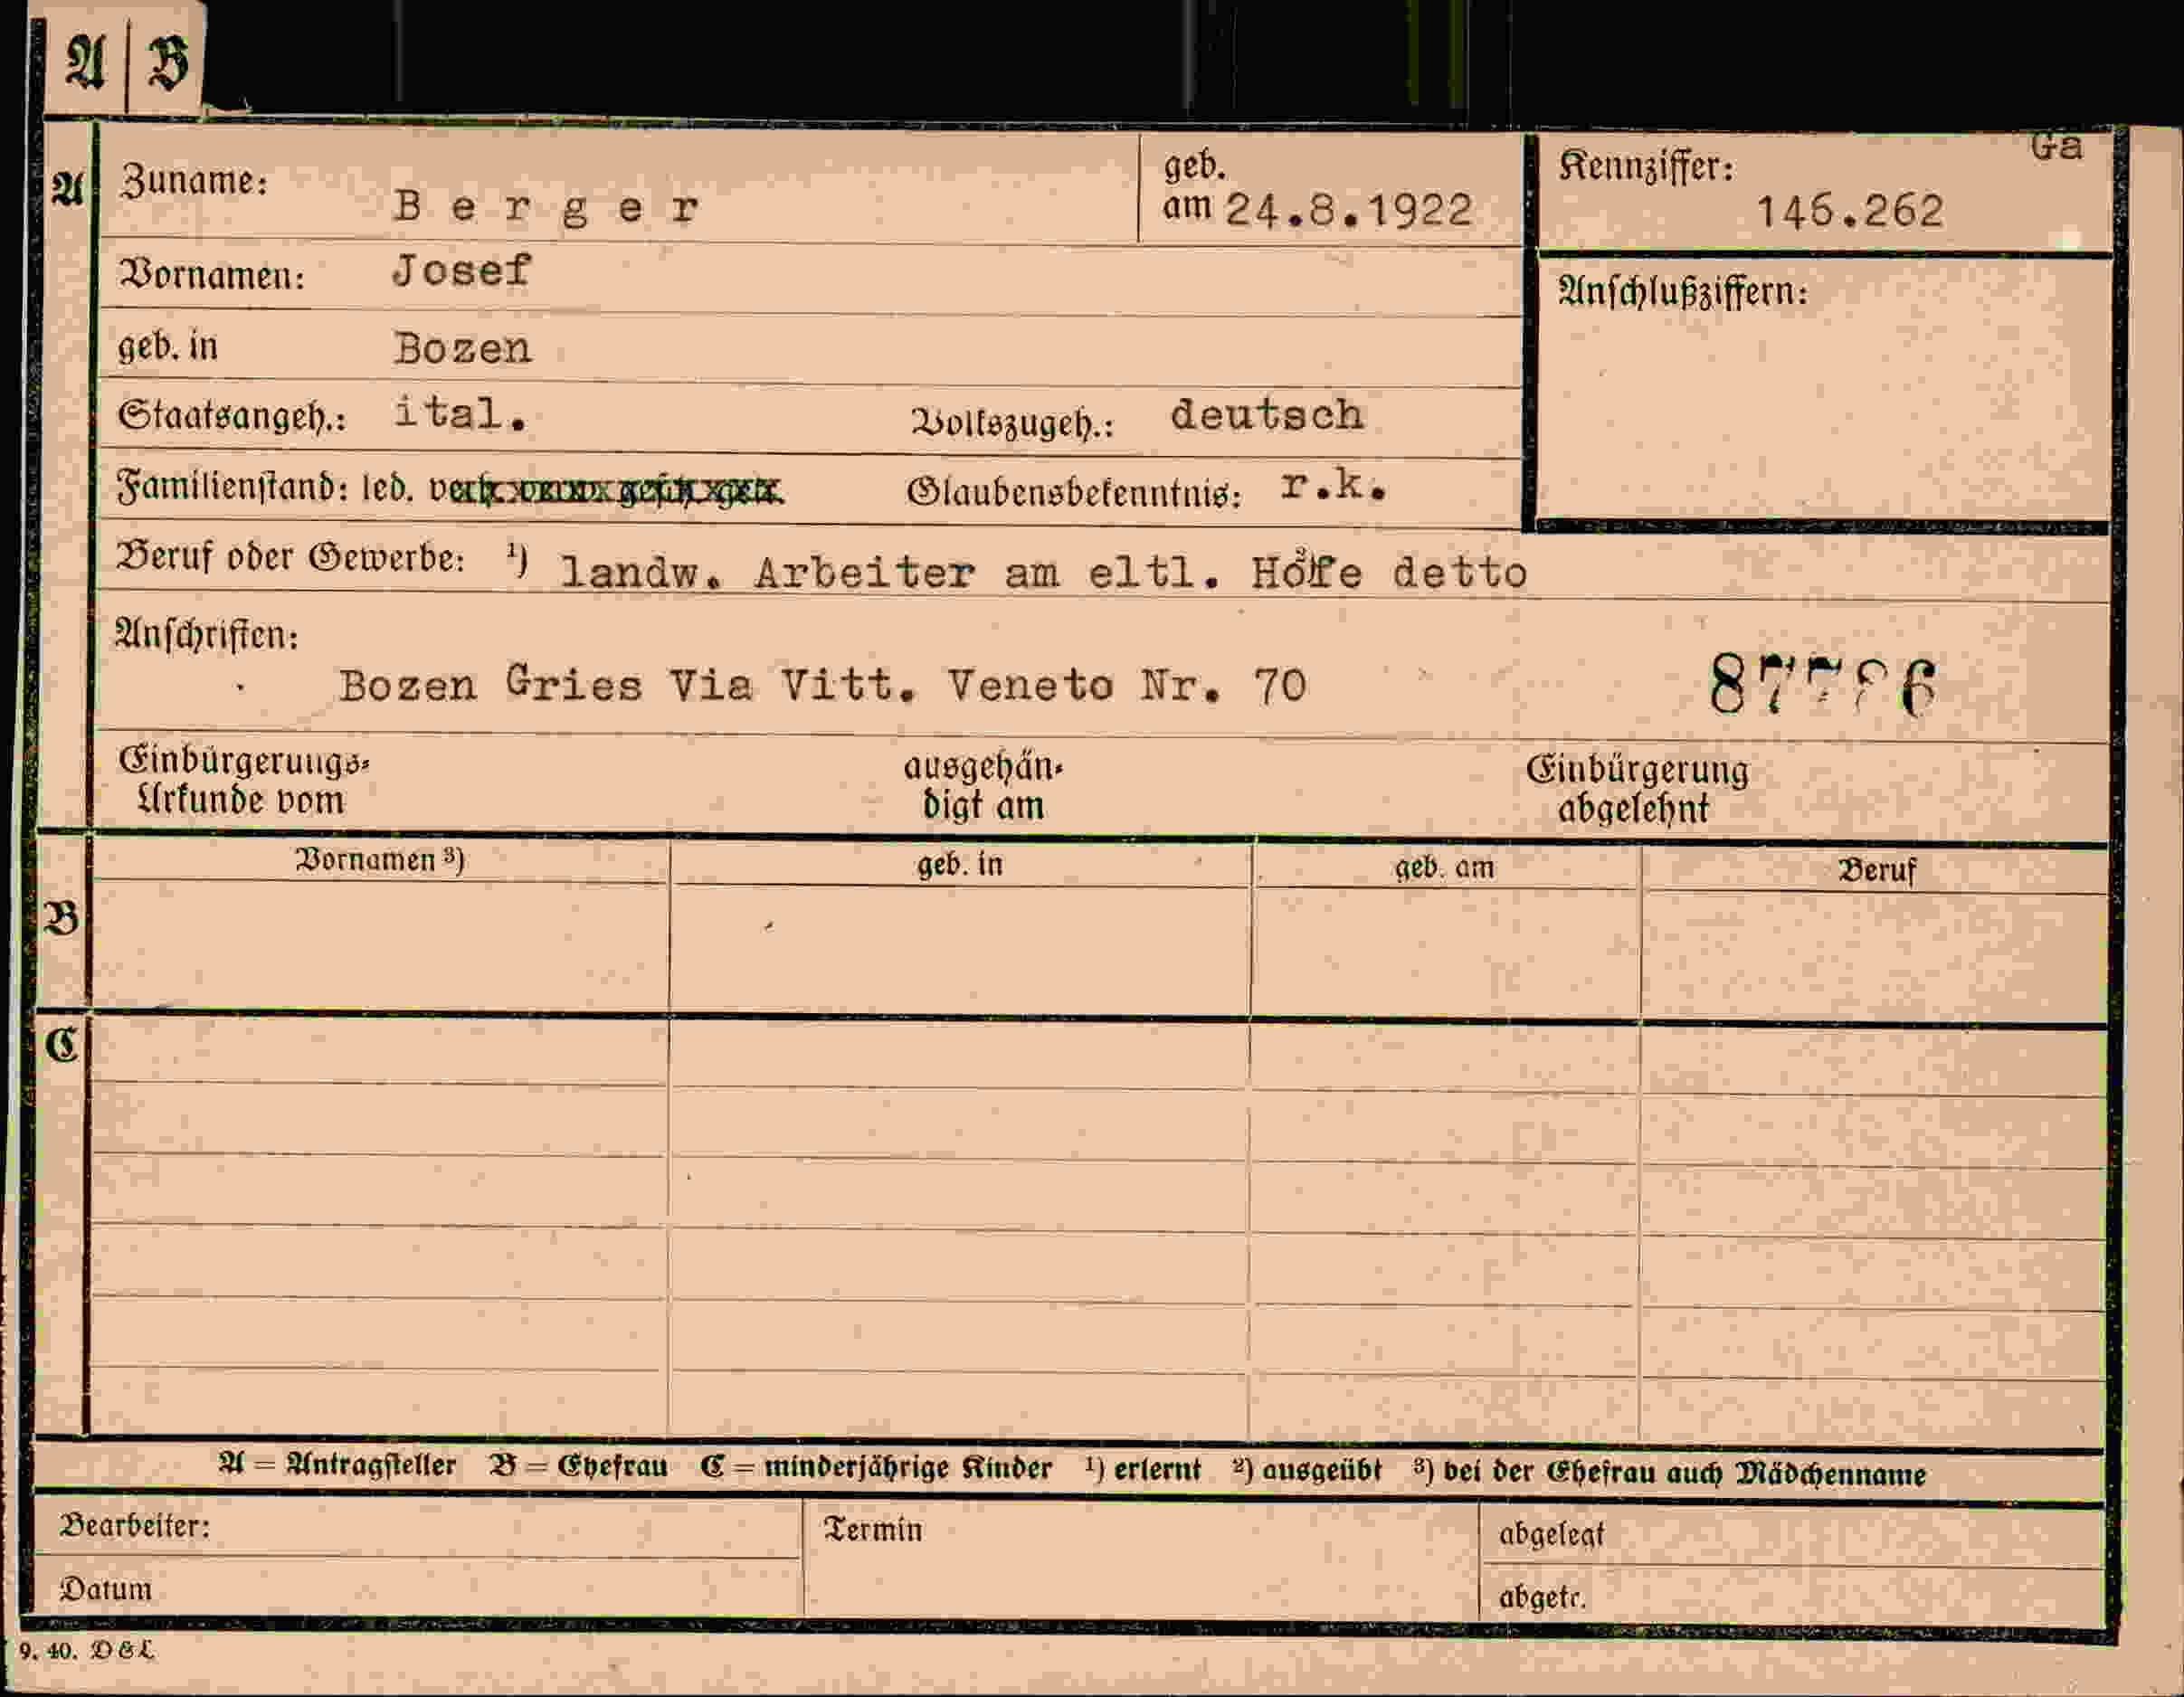 A B
Ga
A Zuname: Berger geb. am 24.8.1922 Kennziffer: 146.262
Vornamen: Josef
Anschlußziffern:
geb. in Bozen
Staatsangeh.: ital. Volkszugeh.: deutsch
Familienstand: led. Glaubensbekenntnis: r.k.
Beruf oder Gewerbe: ¹) landw. Arbeiter am eltl. detto
Anschriften:
Bozen Gries Via Vitt. Veneto Nr. 70
Einbürgerungs-
Urkunde vom
ausgehän-
digt am
Einbürgerung
abgelehnt
B Vornamen ³) geb. in geb. am Beruf
C
A = Antragsteller B = Ehefrau C = minderjährige Kinder ¹) erlernt ²) ausgeübt ³) bei der Ehefrau auch Mädchenname
Bearbeiter: Termin abgelegt
Datum abgetr.
9. 40. D&L